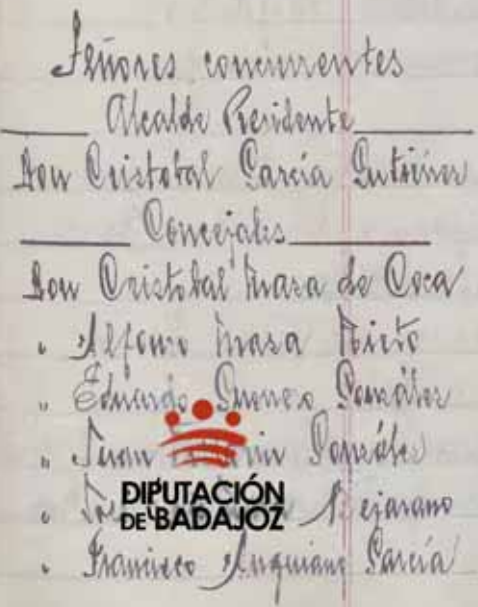 Señores concurrentes
Alcalde Presidente
Don Cristobal García Gutiérrez
Concejales
Don Cristobal Mara de Coca
" Alfonso Mara Nieto
" Eduardo González
" Juan González
" Bejarano
" Francisco Anguiano García
DIPUTACIÓN
DE BADAJOZ